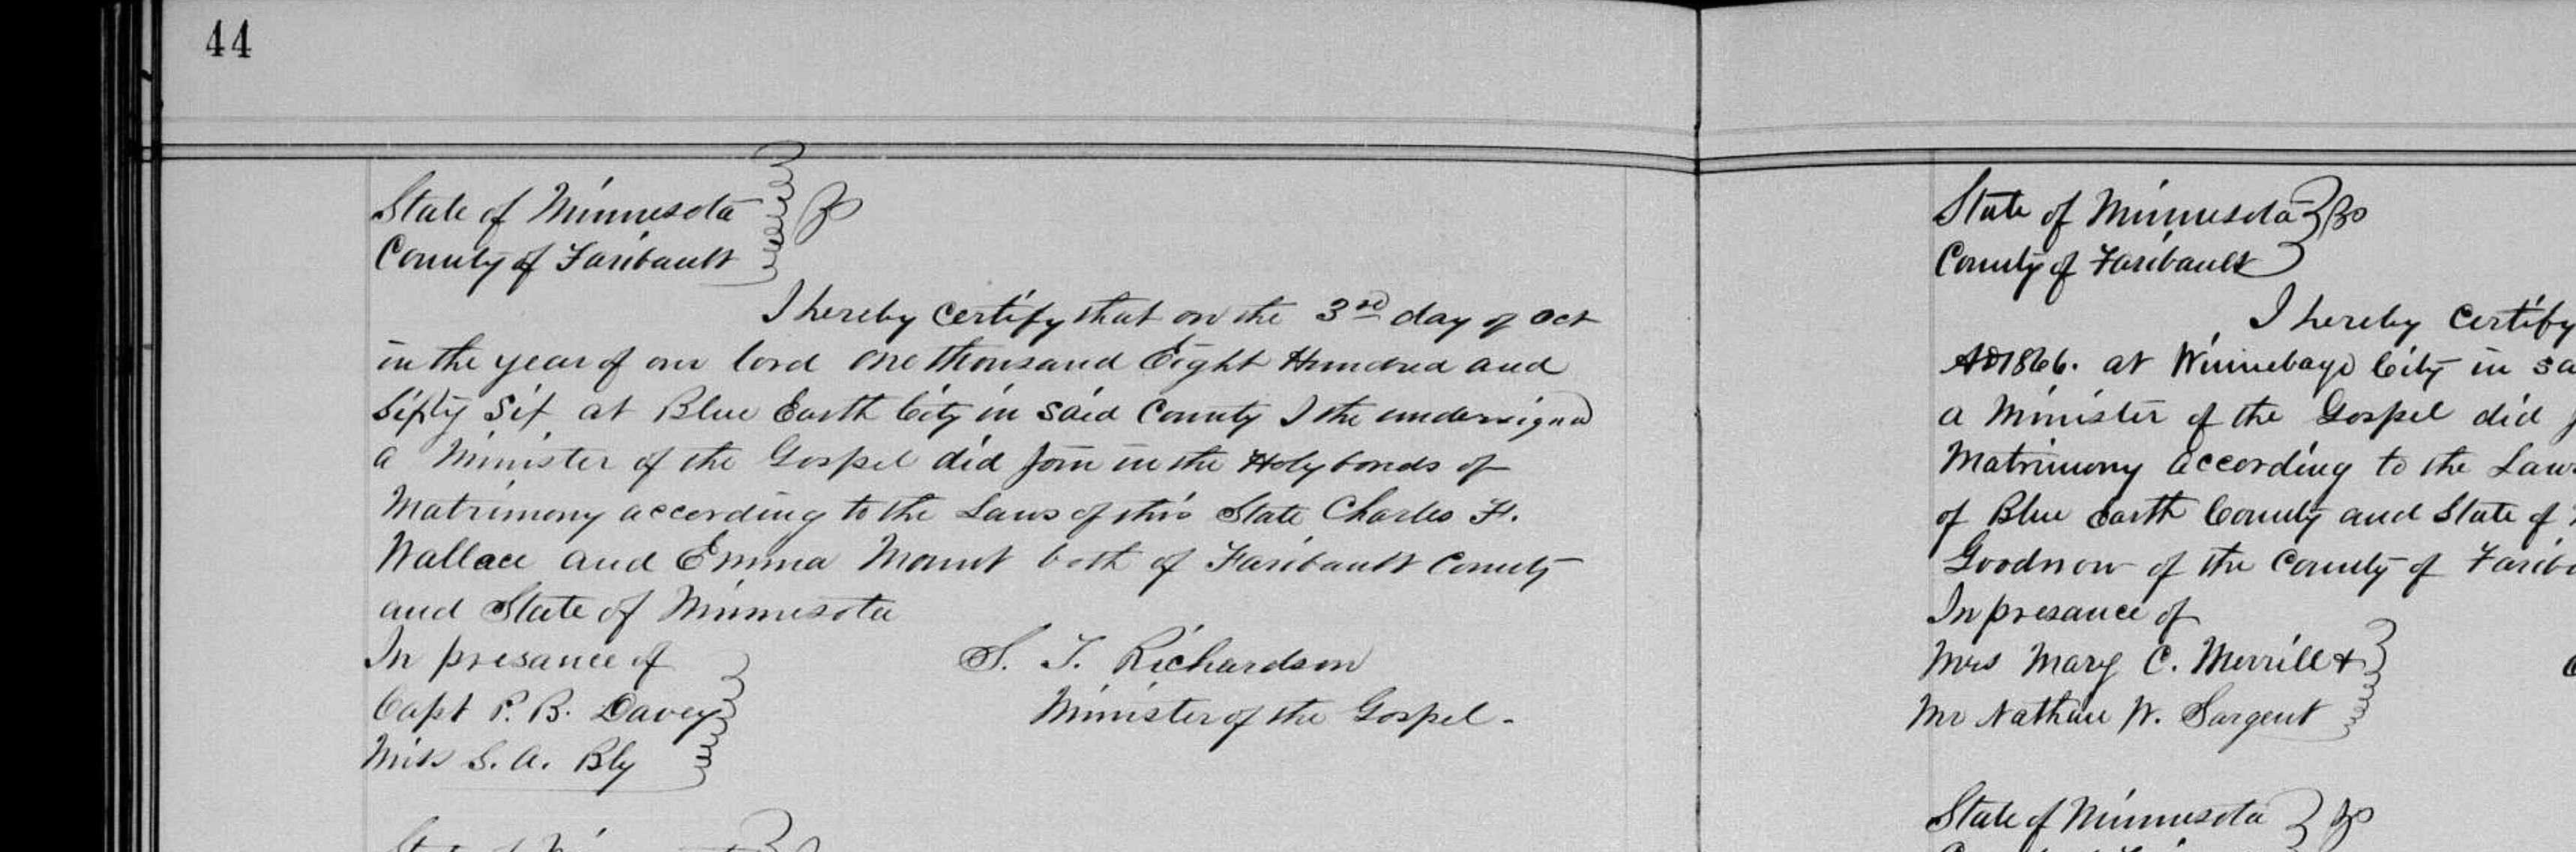 44
State of Minnesota } ss
County of Faribault
I hereby certify that on the 3rd day of Oct
in the year of our lord One thousand Eight Hundred and
Sixty Six at Blue Earth City in said County I the undersigned
a Minister of the Gospel did join in the Holy bonds of
Matrimony according to the Laws of this State Charles F.
Wallace and Emma Mount both of Faribault County
and State of Minnesota
In presance of
Capt P. B. Davey
Miss S. A. Bly
S. T. Richardson
Minister of the Gospel.
State of Minnesota } ss
County of Faribault
I hereby certify
AD 1866. at Winnebago City in sa
a Minister of the Gospel did j
Matrimony according to the Laws
of Blue Earth County and State of
Goodnow of the County of Farib
In presance of
Mrs Mary C. Merrill &
Mr Nathan W. Sargent
State of Minnesota } ss